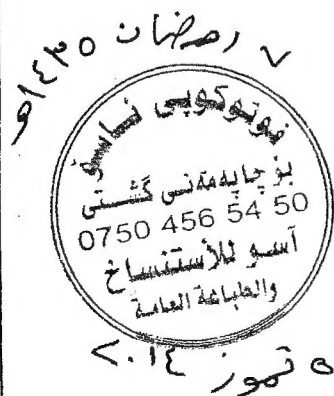 ٧ رمضان ١٤٣٥هـ
فوتوكوپی ئاسۆ
بۆ چاپەمەنی گشتی
0750 456 54 50
آسو للأستنساخ
والطباعة العامة
٥ تموز ٢٠١٤